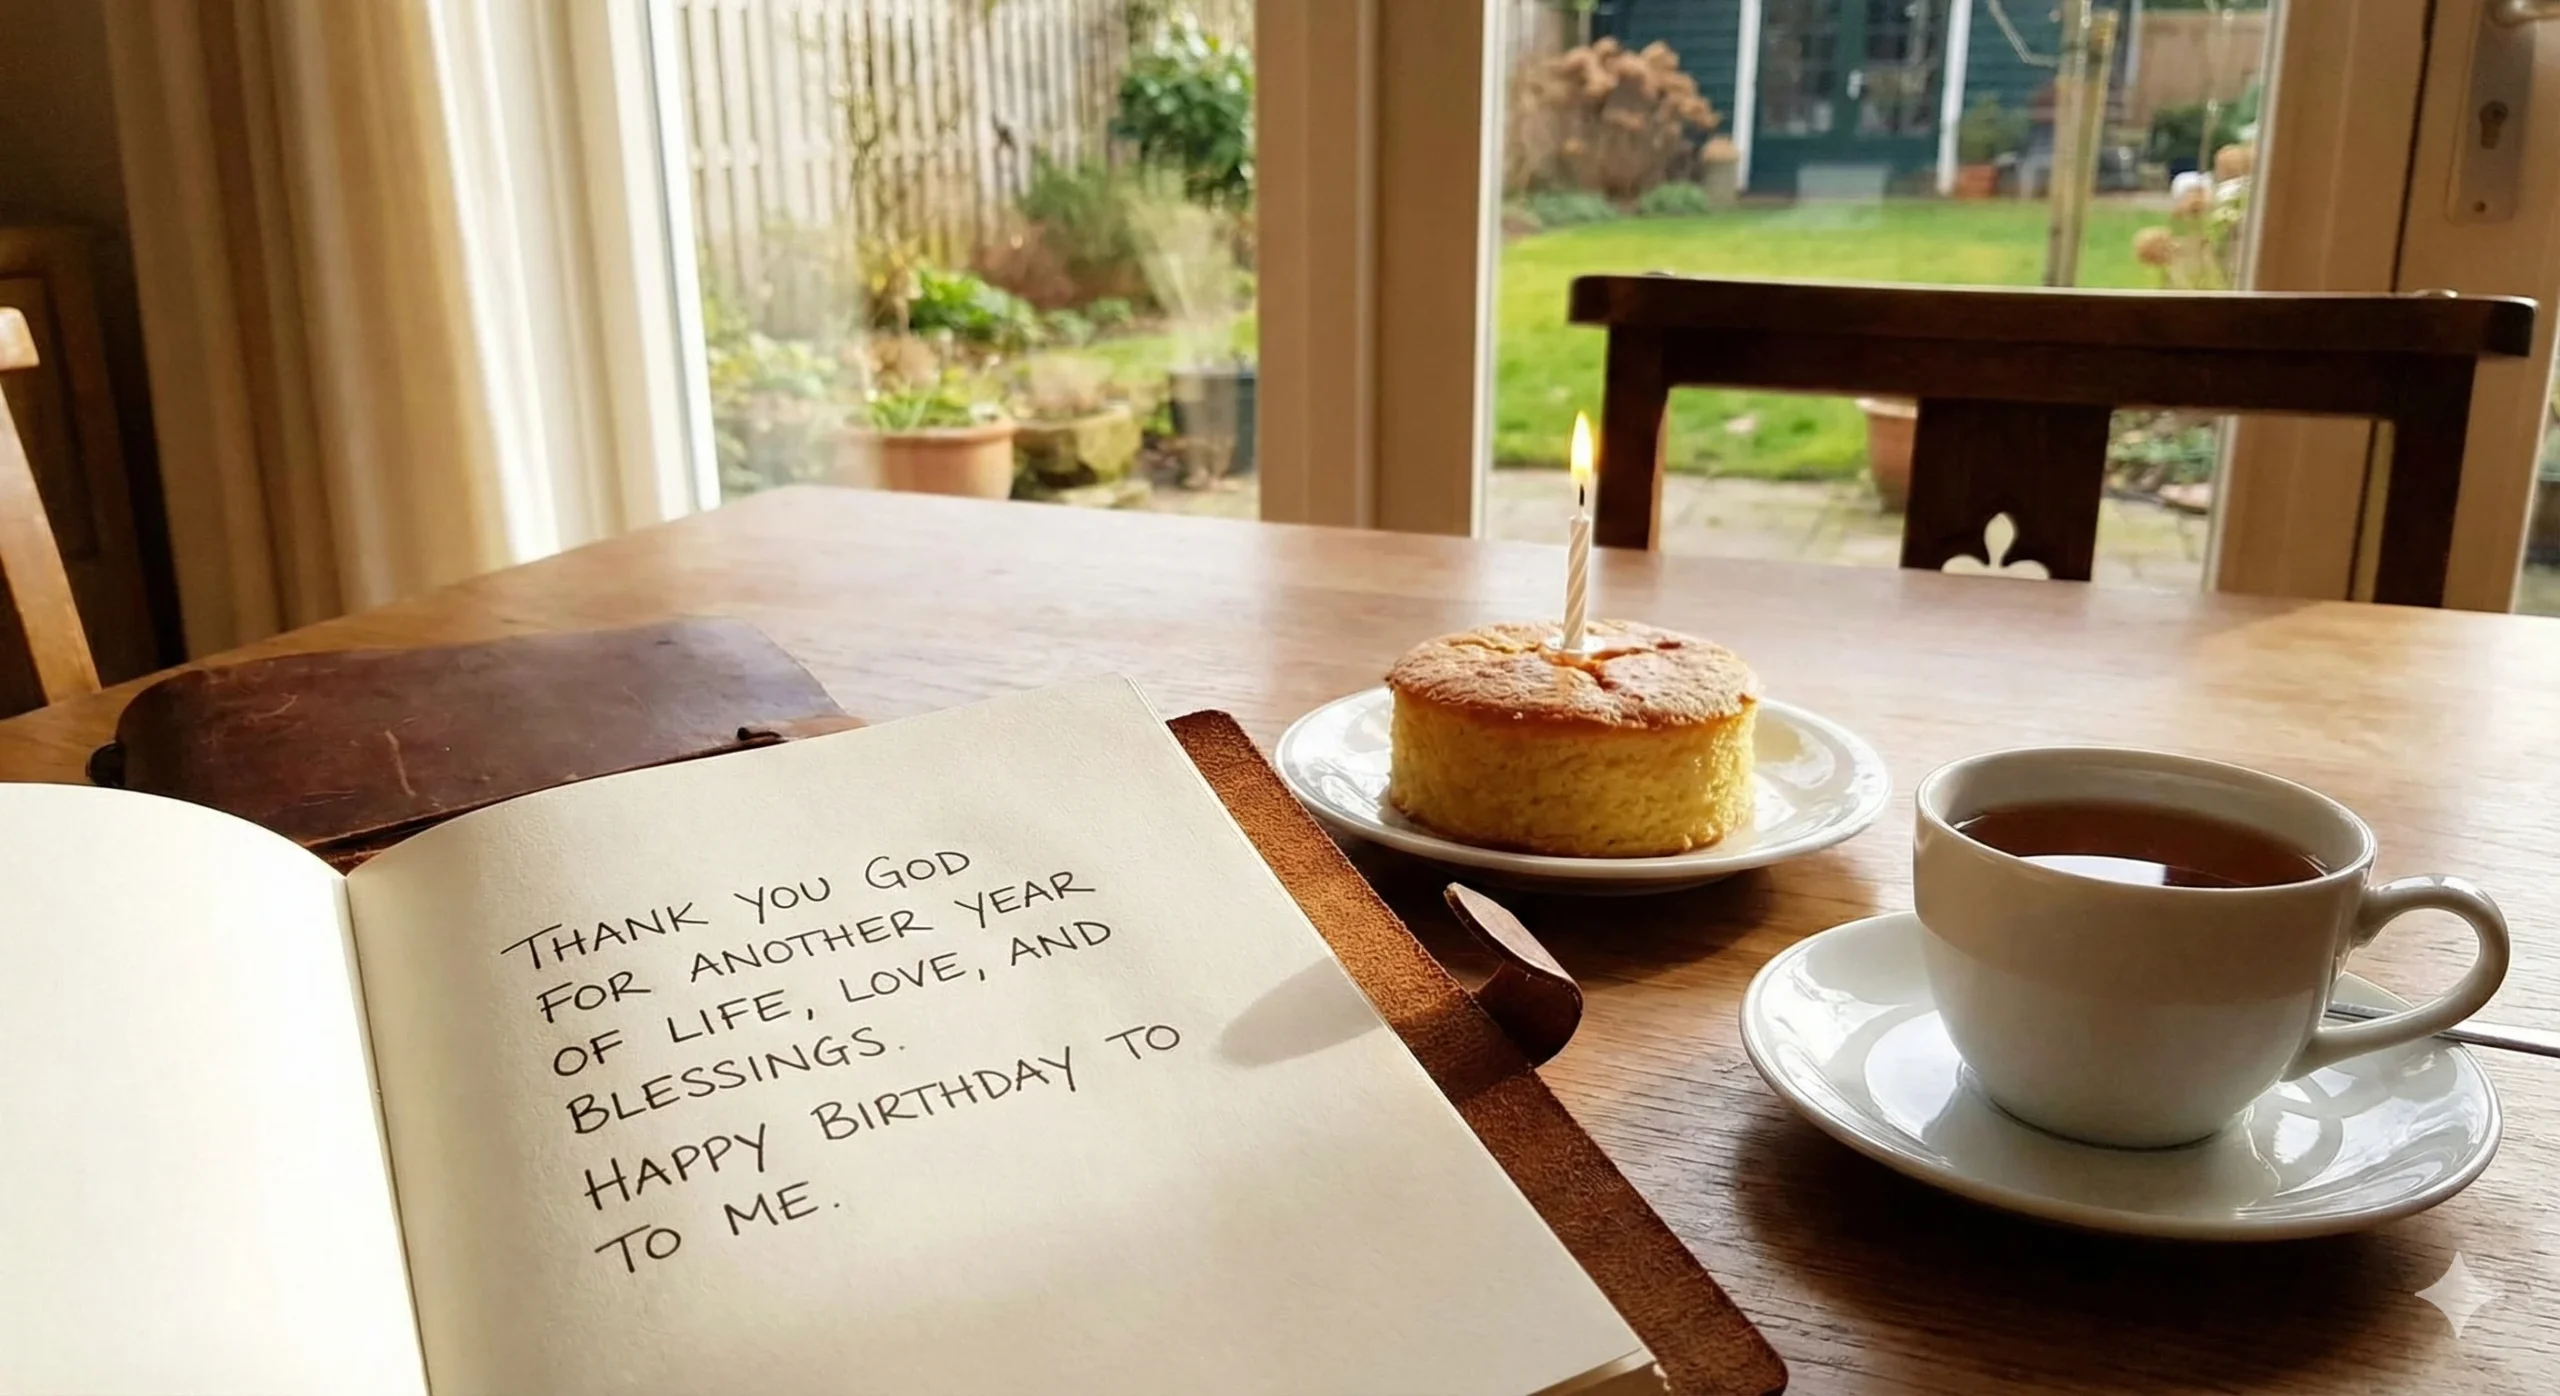 THANK YOU GOD
FOR ANOTHER YEAR
OF LIFE, LOVE, AND
BLESSINGS.
HAPPY BIRTHDAY TO
TO ME.